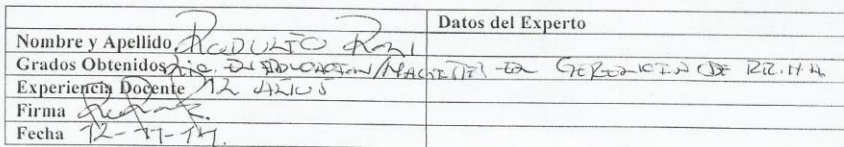 Datos del Experto
Nombre y Apellido
Grados Obtenidos Lic. EN EDUCACION/MAGISTER EN GERENCIA DE RR.HH.
Experiencia Docente 12 AÑOS
Firma
Fecha 12-11-14.